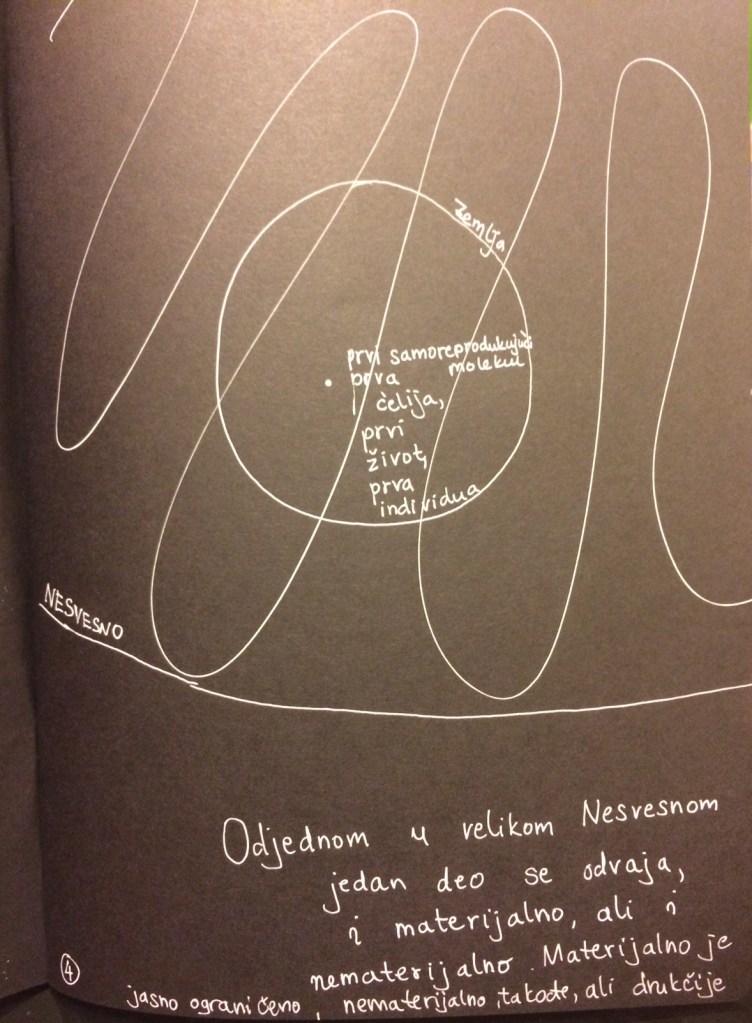 Zemlja
prvi samoreprodukujući
molekul
prva
ćelija,
prvi
život,
prva
individua
NESVESNO
Odjednom u velikom Nesvesnom
jedan deo se odvaja,
i materijalno, ali i
nematerijalno. Materijalno je
jasno ograničeno, nematerijalno, takođe, ali drukčije
4